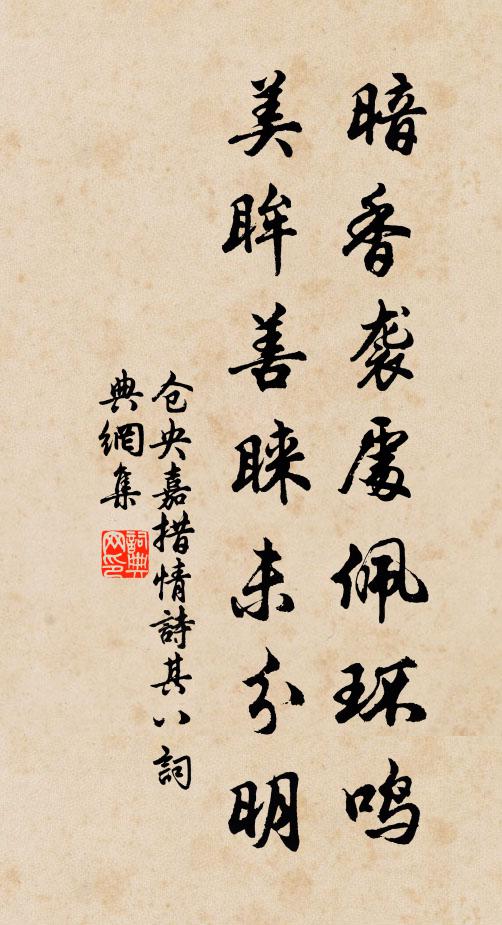 暗香袭處佩环鸣
美眸善睐未分明
仓央嘉措情詩其八詞
典網集
詞典
网印